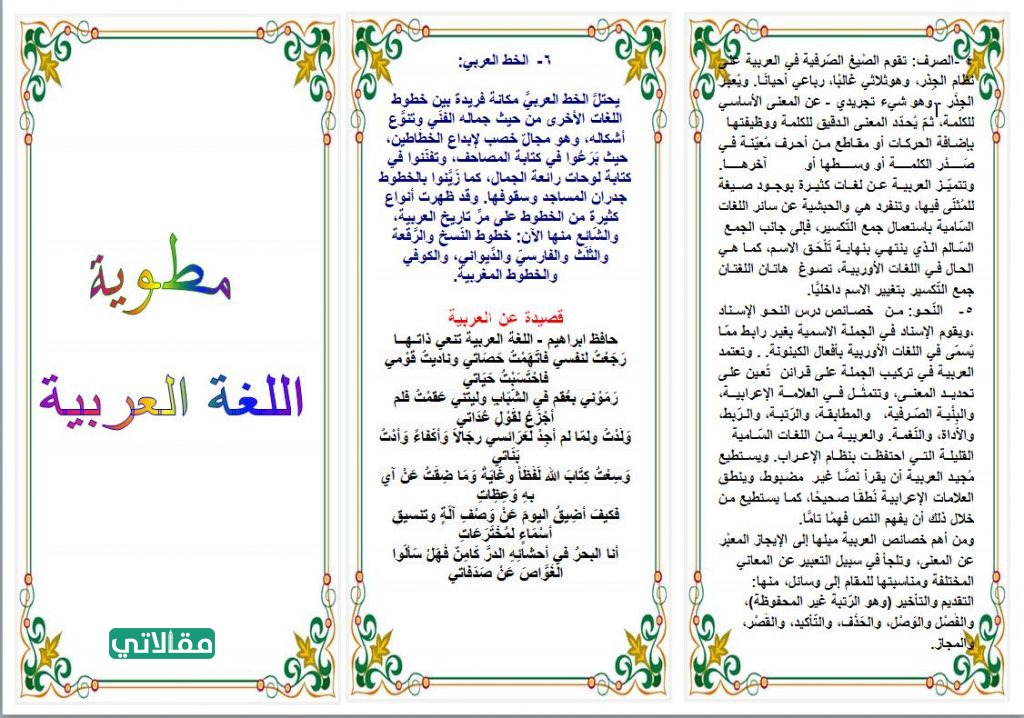 ٤ -الصرف: تقوم الصّيغ الصّرفية في العربية على
نظام الجِذر، وهوثلاثي غالبًا، رباعي أحيانًا. ويُعبّر
الجِذْر - وهو شيء تجريدي - عن المعنى الأساسي
للكلمة، ثمّ يُحدّد المعنى الدقيق للكلمة ووظيفتها
بإضافة الحركات أو مقاطع من أحرف مُعيّنة في
صَدْر الكلمة أو وسطها أو آخرها.
وتتميّز العربية عن لغات كثيرة بوجود صيغة
للمُثنّى فيها، وتنفرد هي والحبشية عن سائر اللغات
السّامية باستعمال جمع التّكسير، فإلى جانب الجمع
السّالم الذي ينتهي بنهاية تَلْحَق الاسم، كما هي
الحال في اللغات الأوربية، تصوغ هاتان اللغتان
جمع التّكسير بتغيير الاسم داخليًّا.
٥- النّحو: من خصائص درس النحو الإسناد
،ويقوم الإسناد في الجملة الاسمية بغير رابط ممّا
يُسمّى في اللغات الأوربية بأفعال الكينونة. . وتعتمد
العربية في تركيب الجملة على قرائن تُعين على
تحديد المعنى، وتتمثّل في العلامة الإعرابية،
والبِنْية الصّرفية، والمطابقة، والرّتبة، والرّبط،
والأداة، والنّغمة. والعربية من اللغات السّامية
القليلة التي احتفظت بنظام الإعراب. ويستطيع
مُجيد العربية أن يقرأ نصًّا غير مضبوط، وينطق
العلامات الإعرابية نُطقًا صحيحًا، كما يستطيع من
خلال ذلك أن يفهم النص فهمًا تامًّا.
ومن أهم خصائص العربية ميلها إلى الإيجاز المعبّر
عن المعنى، وتلجأ في سبيل التعبير عن المعاني
المختلفة ومناسبتها للمقام إلى وسائل، منها:
التقديم والتأخير (وهو الرّتبة غير المحفوظة)،
والفَصْل والوَصْل، والحَذْف، والتّأكيد، والقَصْر،
والمجاز.
٦- الخط العربي:
يحتلّ الخط العربيّ مكانة فريدة بين خطوط
اللغات الأخرى من حيث جماله الفنّي وتنوُّع
أشكاله، وهو مجالٌ خصب لإبداع الخطّاطين،
حيث بَرَعُوا في كتابة المصاحف، وتفنّنوا في
كتابة لوحات رائعة الجمال، كما زَيَّنوا بالخطوط
جدران المساجد وسقوفها. وقد ظهرت أنواع
كثيرة من الخطوط على مرِّ تاريخ العربية،
والشّائع منها الآن: خطوط النّسخ والرُّقعة
والثُّلُث والفارسيّ والدِّيواني، والكوفي
والخطوط المغربية.
قصيدة عن العربية
حافظ ابراهيم - اللغة العربية تنعي ذاتها
رَجَعْتُ لنفسي فاتَّهَمْتُ حَصَاتي وناديتُ قَوْمي
فاحْتَسَبْتُ حَيَاتي
رَمَوْني بعُقم في الشَّبَابِ وليتني عَقمْتُ فلم
أجْزَعْ لقَوْلِ عُدَاتي
وَلَدْتُ ولمّا لم أجِدْ لعَرَائسي رجَالاً وَأكفاءً وَأدْتُ
بَنَاتي
وَسِعْتُ كِتَابَ الله لَفْظاً وغَايَةً وَمَا ضِقْتُ عَنْ آي
بهِ وَعِظاتِ
فكيفَ أضِيقُ اليومَ عَنْ وَصْفِ آلَةٍ وتنسيق
أسْمَاءٍ لمُخْتَرَعَاتِ
أنا البحرُ في أحشائِهِ الدرُّ كَامِنٌ فَهَلْ سَألُوا
الغَوَّاصَ عَنْ صَدَفاتي
مطوية
اللغة العربية
مقالاتي